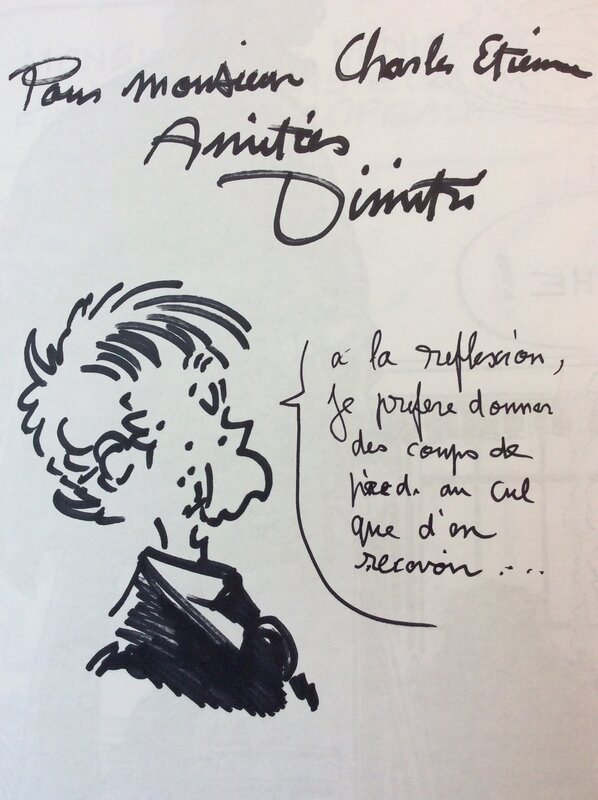 Pour monsieur Charles Etienne
Amitiés
Dimitri
à la reflexion,
je prefere donner
des coups de
pied au cul
que d'en
recevoir ...
HE!